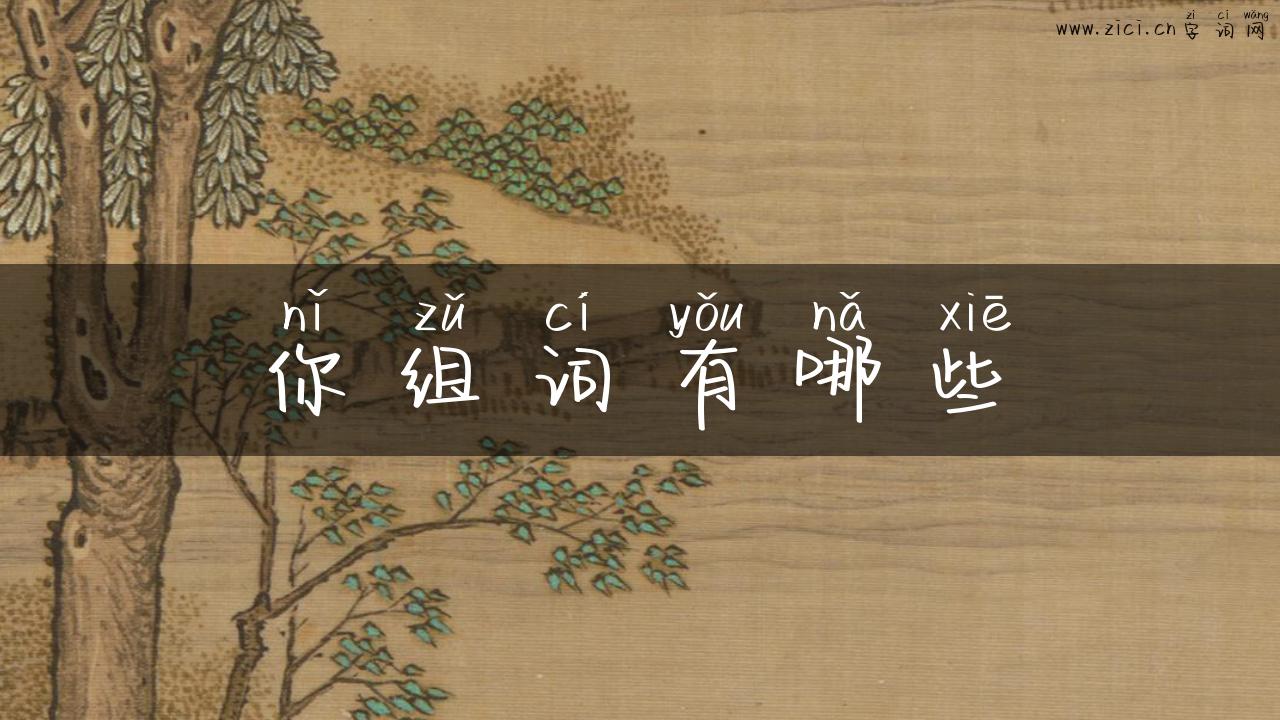 zì cí wǎng
www.zici.cn 字 词 网
nǐ zǔ cí yǒu nǎ xiē
你 组 词 有 哪 些